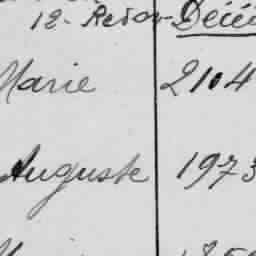 12 - Retor - Décéd
Marie 2104
Auguste 1973